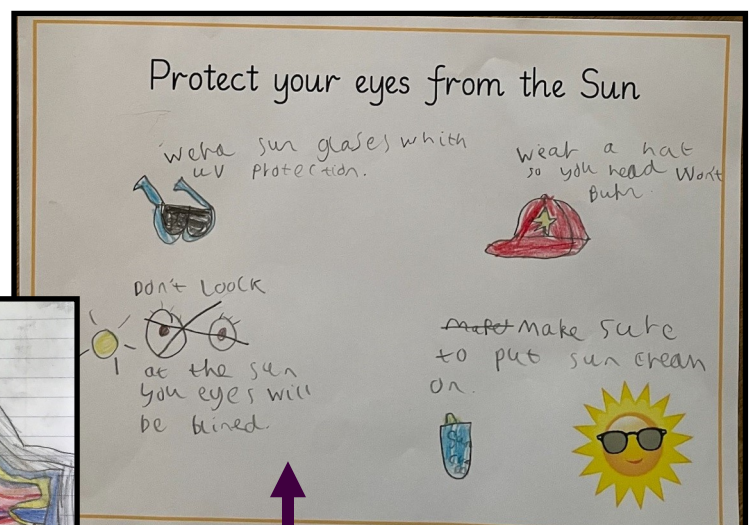 Protect your eyes from the Sun
wera sun glases whith
uv protection.
wear a hat
so you head won't
Buhr.
Don't Loock
at the sun
you eyes will
be blined.
Make sure
to put sun crean
on.